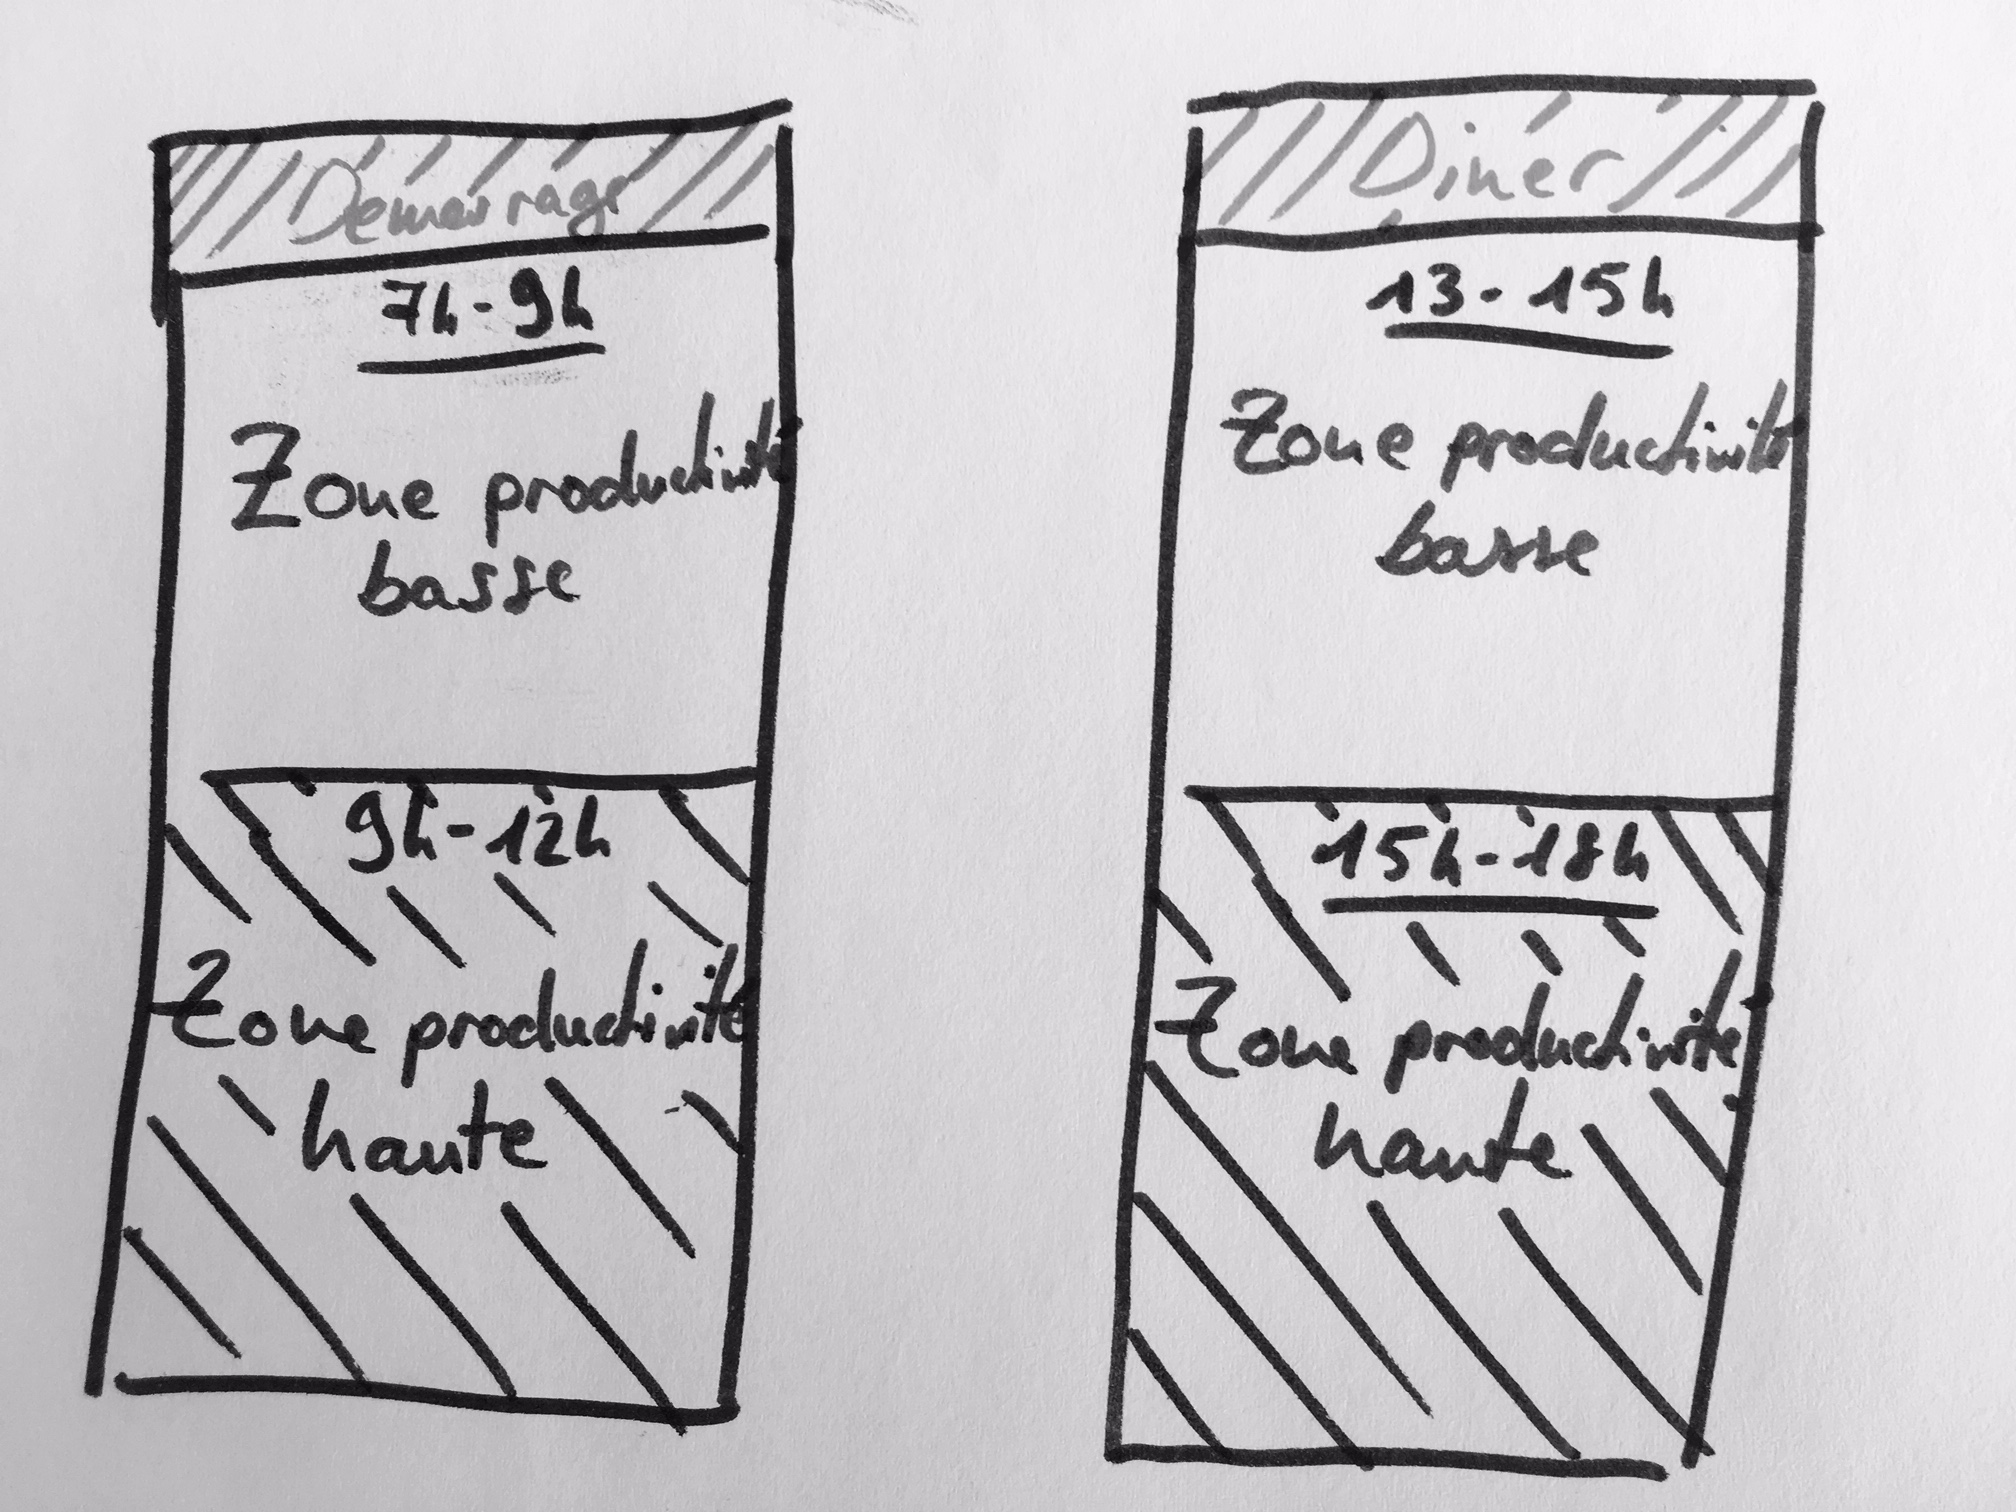 Demarrage
7h-9h
Zone productivité
basse
9h-12h
Zone productivité
haute
Diner
13-15h
Zone productivité
basse
15h-18h
Zone productivité
haute